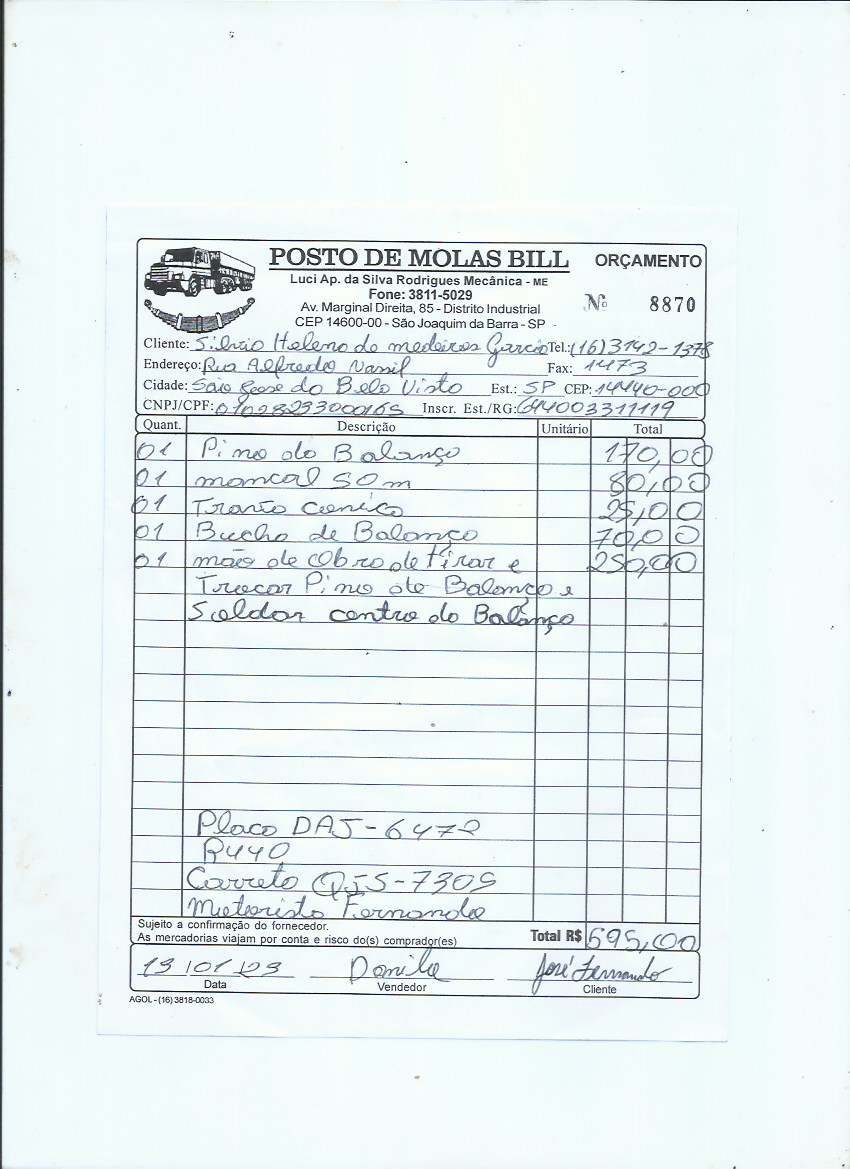 POSTO DE MOLAS BILL
ORÇAMENTO
Luci Ap. da Silva Rodrigues Mecânica - ME
Fone: 3811-5029
Av. Marginal Direita, 85 - Distrito Industrial
CEP 14600-00 - São Joaquim da Barra - SP
Nº 8870
Cliente: Silvio Heleno de medeiros Garcia Tel.: (16) 3142-1378
Endereço: Rua Alfredo Nassif Fax: 1473
Cidade: São Jose do Bela Vista Est.: SP CEP: 14440-000
CNPJ/CPF: 01028233000165 Inscr. Est./RG: 644003311119
Quant. Descrição Unitário Total
01 Pino do Balanço 170,00
01 mancal 50 m 80,00
01 Trava conico 25,00
01 Bucha de Balanço 70,00
01 mão de obra de tirar e 250,00
Trocar Pino de Balanço e
Soldar centro do Balanço
Placa DAJ-6472
R440
Carreta QJS-7305
Motorista Fernando
Sujeito a confirmação do fornecedor.
As mercadorias viajam por conta e risco do(s) comprador(es)
Total R$ 595,00
13/01/23 Danilo José Fernando
Data Vendedor Cliente
AGOL - (16) 3818-0033